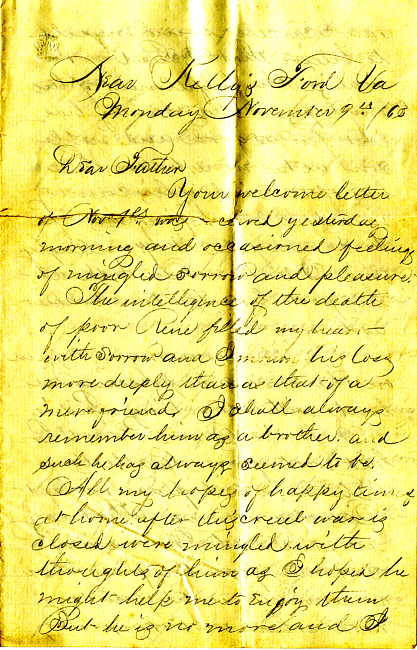 Near Kelly's Ford Va
Monday November 9th /63
Dear Father
Your welcome letter
of Nov 1st was received yesterday
morning and occasioned feelings
of mingled sorrow and pleasure.
The intelligence of the death
of poor filled my heart
with sorrow and I mourn his loss
more deeply than as that of a
mere friend. I shall always
remember him as a brother, and
such he has always seemed to be.
All my hopes of happy times
at home after this cruel war is
closed were mingled with
thoughts of him as I hoped he
might help me to enjoy them
But he is no more, and I